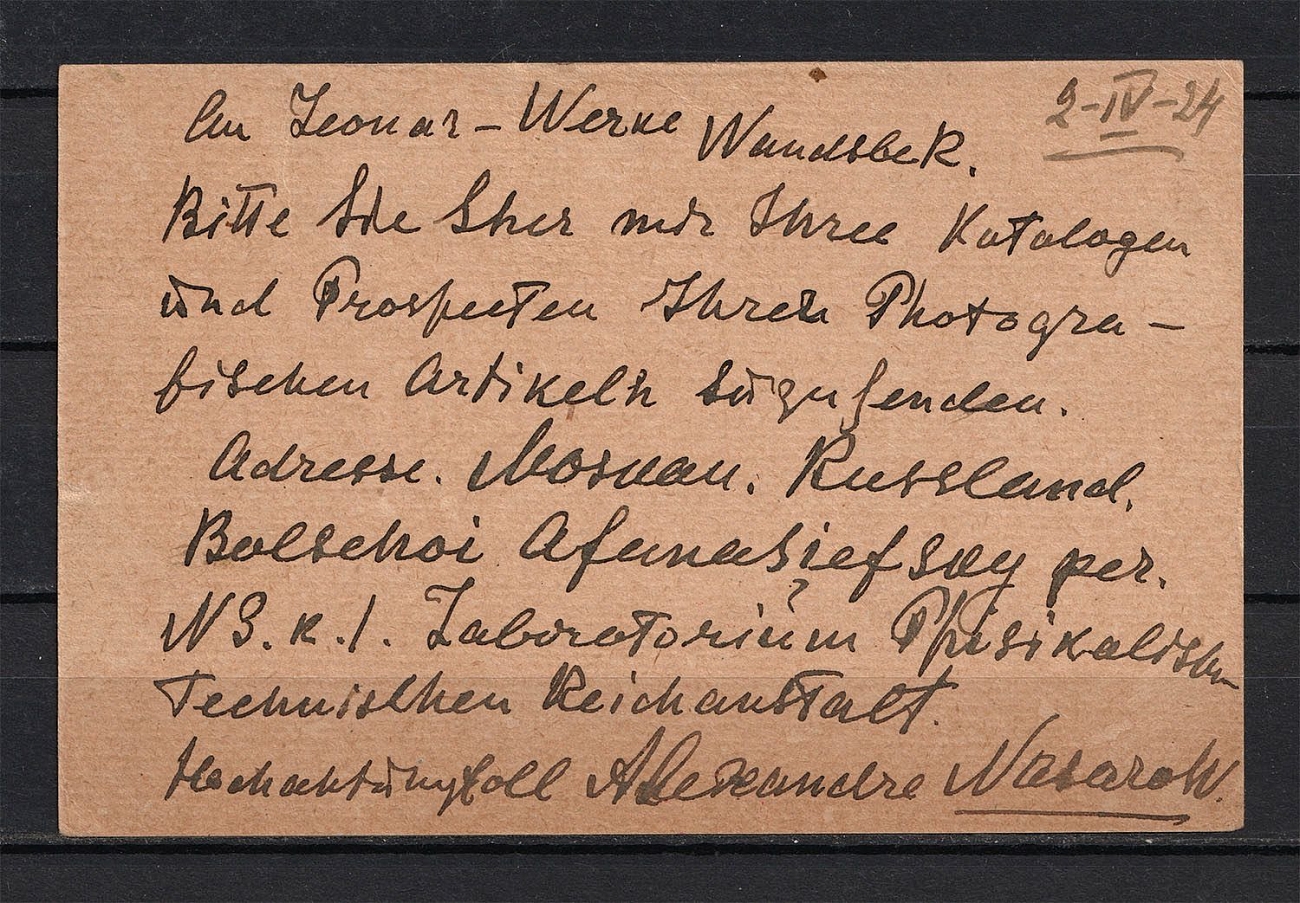 2-IV-24
An Leonar-Werke Wandsbek.
Bitte Sie Sher mir Ihree Katalogen
und Prospecten Ihren Photogra-
fischen Artikeln zugusenden.
Adresse. Moskau. Russland.
Bolschoi Afanasiefsky per.
N3. k. 1. Laboratorium Phisikalisch-
Technischen Reichanstalt.
Hochachtungsfoll Alexandre Nasarow.